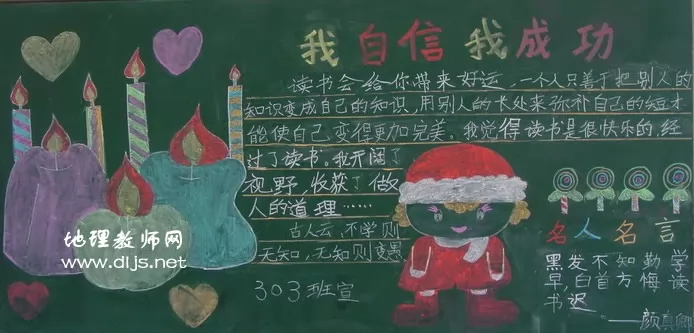 我自信我成功
读书会给你带来好运,一个人只善于把别人的
知识变成自己的知识,用别人的长处来弥补自己的短才
能使自己变得更加完美。我觉得读书是很快乐的,经
过了读书。我开阔了
视野,收获了做
人的道理……
古人云,不学则
无知,无知则变愚
303班宣
名人名言
黑发不知勤学
早,白首方悔读
书迟
——颜真卿
地理教师网
www.dljs.net